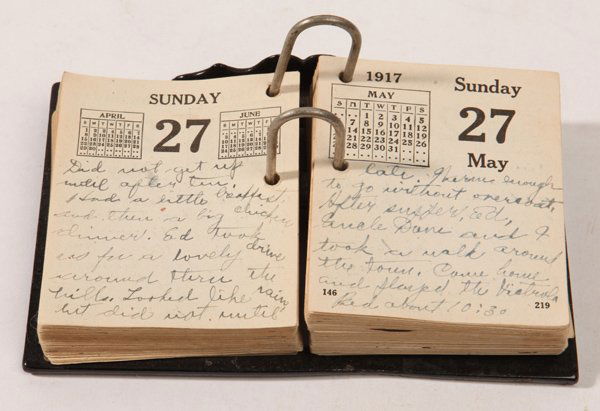 SUNDAY
APRIL
27
JUNE
Did not get up
until after ten.
Had a little breakfast,
and then a big chicken
dinner. Ed took
us for a lovely drive
around thru the
hills. Looked like rain
but did not until
1917
MAY
S M T W T F S
1 2 3 4 5
Sunday
27
May
late. Warm enough
to go without overcoat.
After supper, Ed,
Uncle Dave and I
took a walk around
the town. Came home
and played the Victrola
Bed about 10:30
146
219